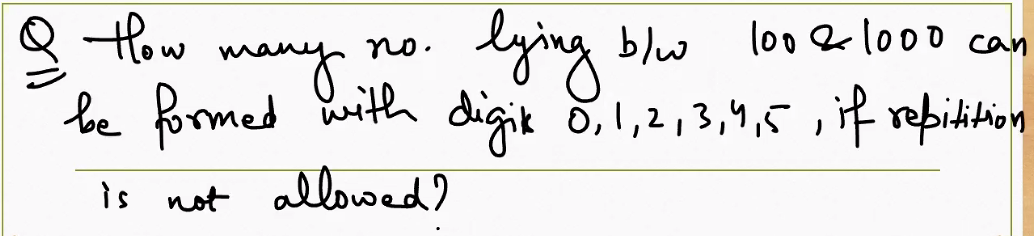 Q How many no. lying b/w 100 & 1000 can
be formed with digit 0,1,2,3,4,5, if repitition
is not allowed?